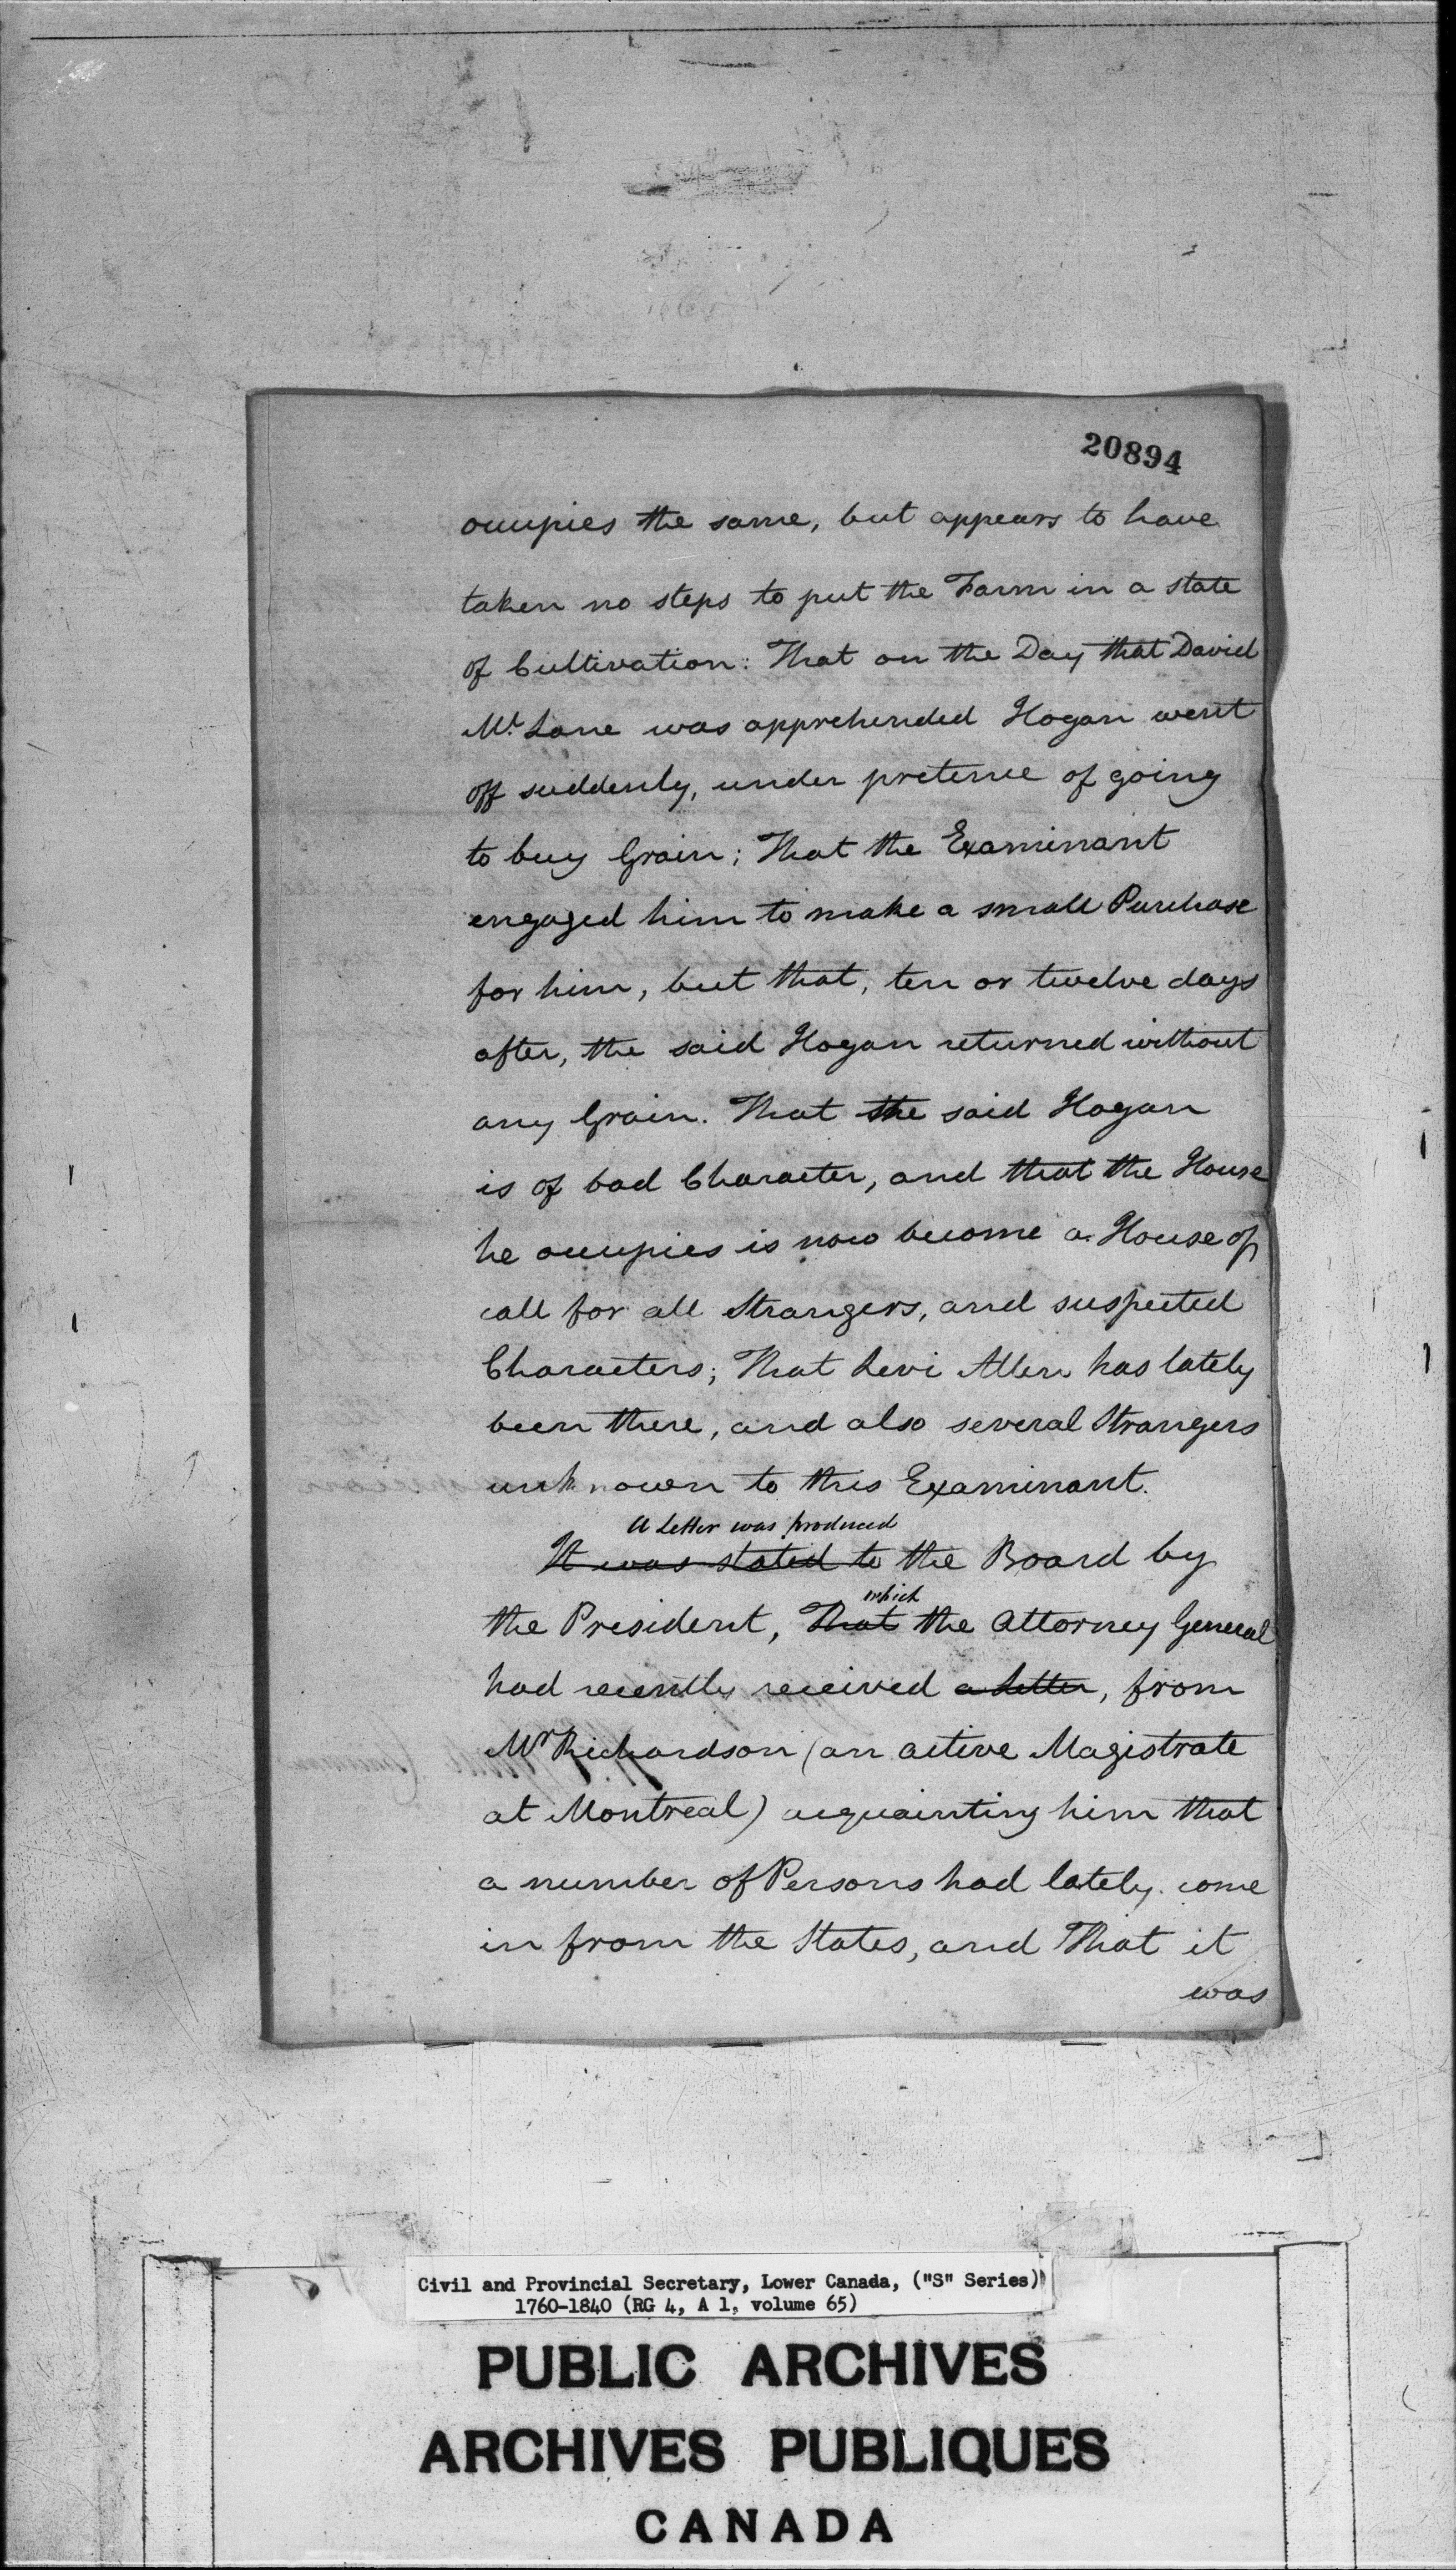 20894
occupies the same, but appears to have
taken no steps to put the Farm in a state
of Cultivation: That on the Day that David
Mc Lane was apprehended Hogan went
off suddenly, under pretence of going
to buy Grain; That the Examinant
engaged him to make a small Purchase
for him, but that, ten or twelve days
after, the said Hogan returned without
any Grain. That the said Hogan
is of bad Character, and that the House
he occupies is now become a House of
call for all Strangers, and suspected
Characters; That Levi Allen has lately
been there, and also several Strangers
unknown to this Examinant.
A Letter was produced
It was stated to the Board by
which
the President, That the Attorney General
had recently received a Letter, from
Mr Richardson (an active Magistrate
at Montreal) acquainting him that
a number of Persons had lately come
in from the States, and That it
was
Civil and Provincial Secretary, Lower Canada, ("S" Series)
1760-1840 (RG 4, A 1, volume 65)
PUBLIC ARCHIVES
ARCHIVES PUBLIQUES
CANADA